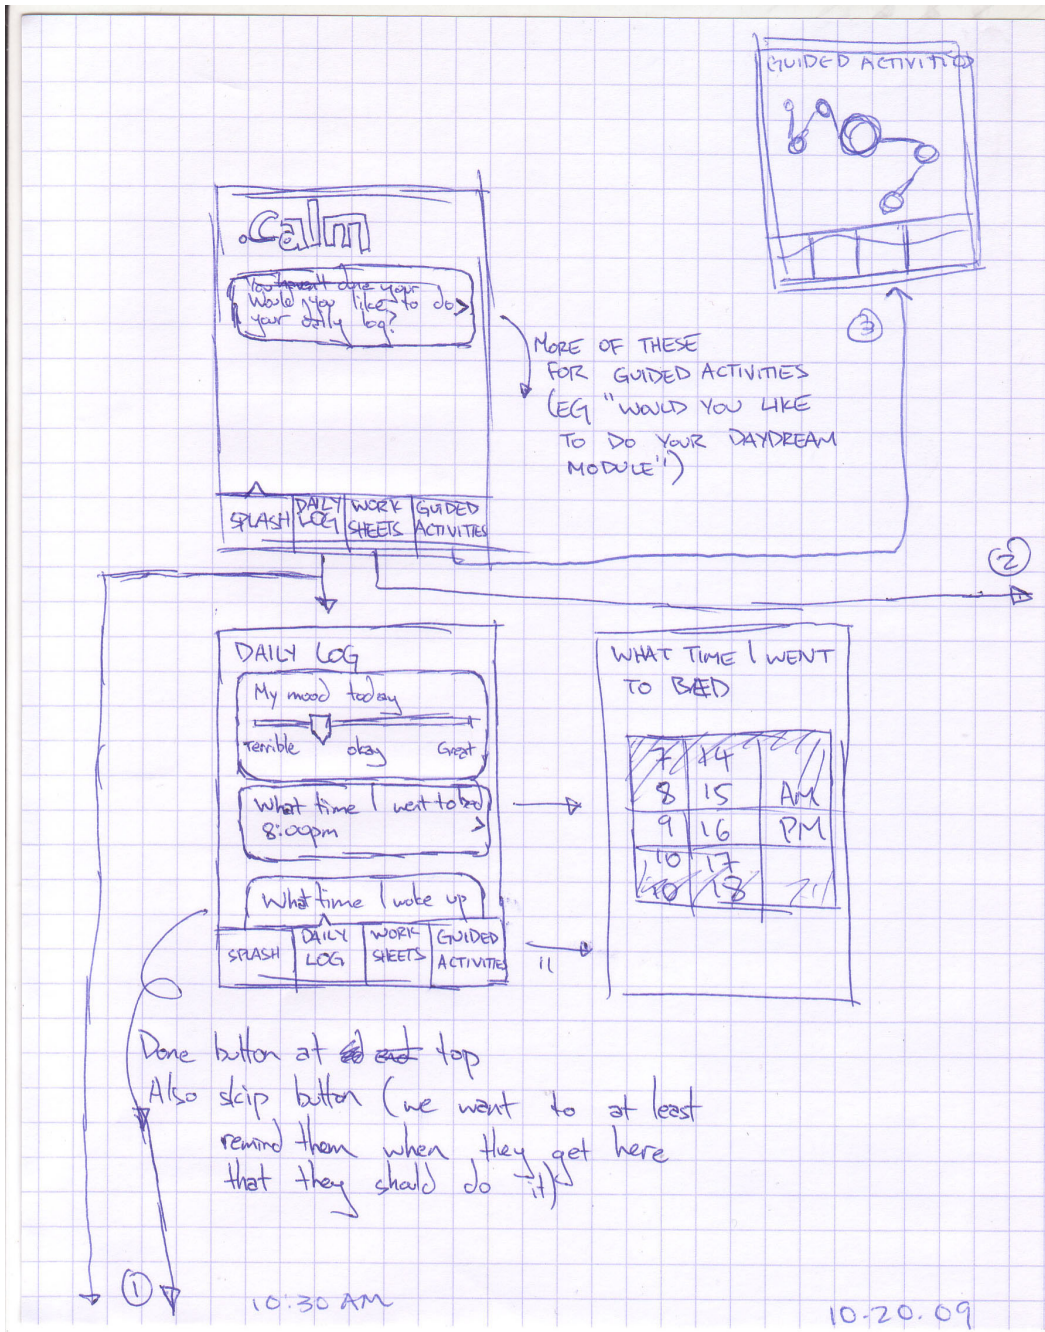 GUIDED ACTIVITIES
.calm
You haven't done your
Would you like to do >
your daily log?
3
MORE OF THESE
FOR GUIDED ACTIVITIES
(EG "WOULD YOU LIKE
TO DO YOUR DAYDREAM
MODULE")
SPLASH
DAILY LOG
WORK SHEETS
GUIDED ACTIVITIES
2
DAILY LOG
My mood today
terrible okay Great
What time I went to bed
8:00pm >
What time I woke up
SPLASH
DAILY LOG
WORK SHEETS
GUIDED ACTIVITIES
WHAT TIME I WENT
TO BED
7 14
8 15 AM
9 16 PM
10 17
10 18
11
Done button at top
Also skip button (we want to at least
remind them when they get here
that they should do it)
1
10:30 AM
10.20.09